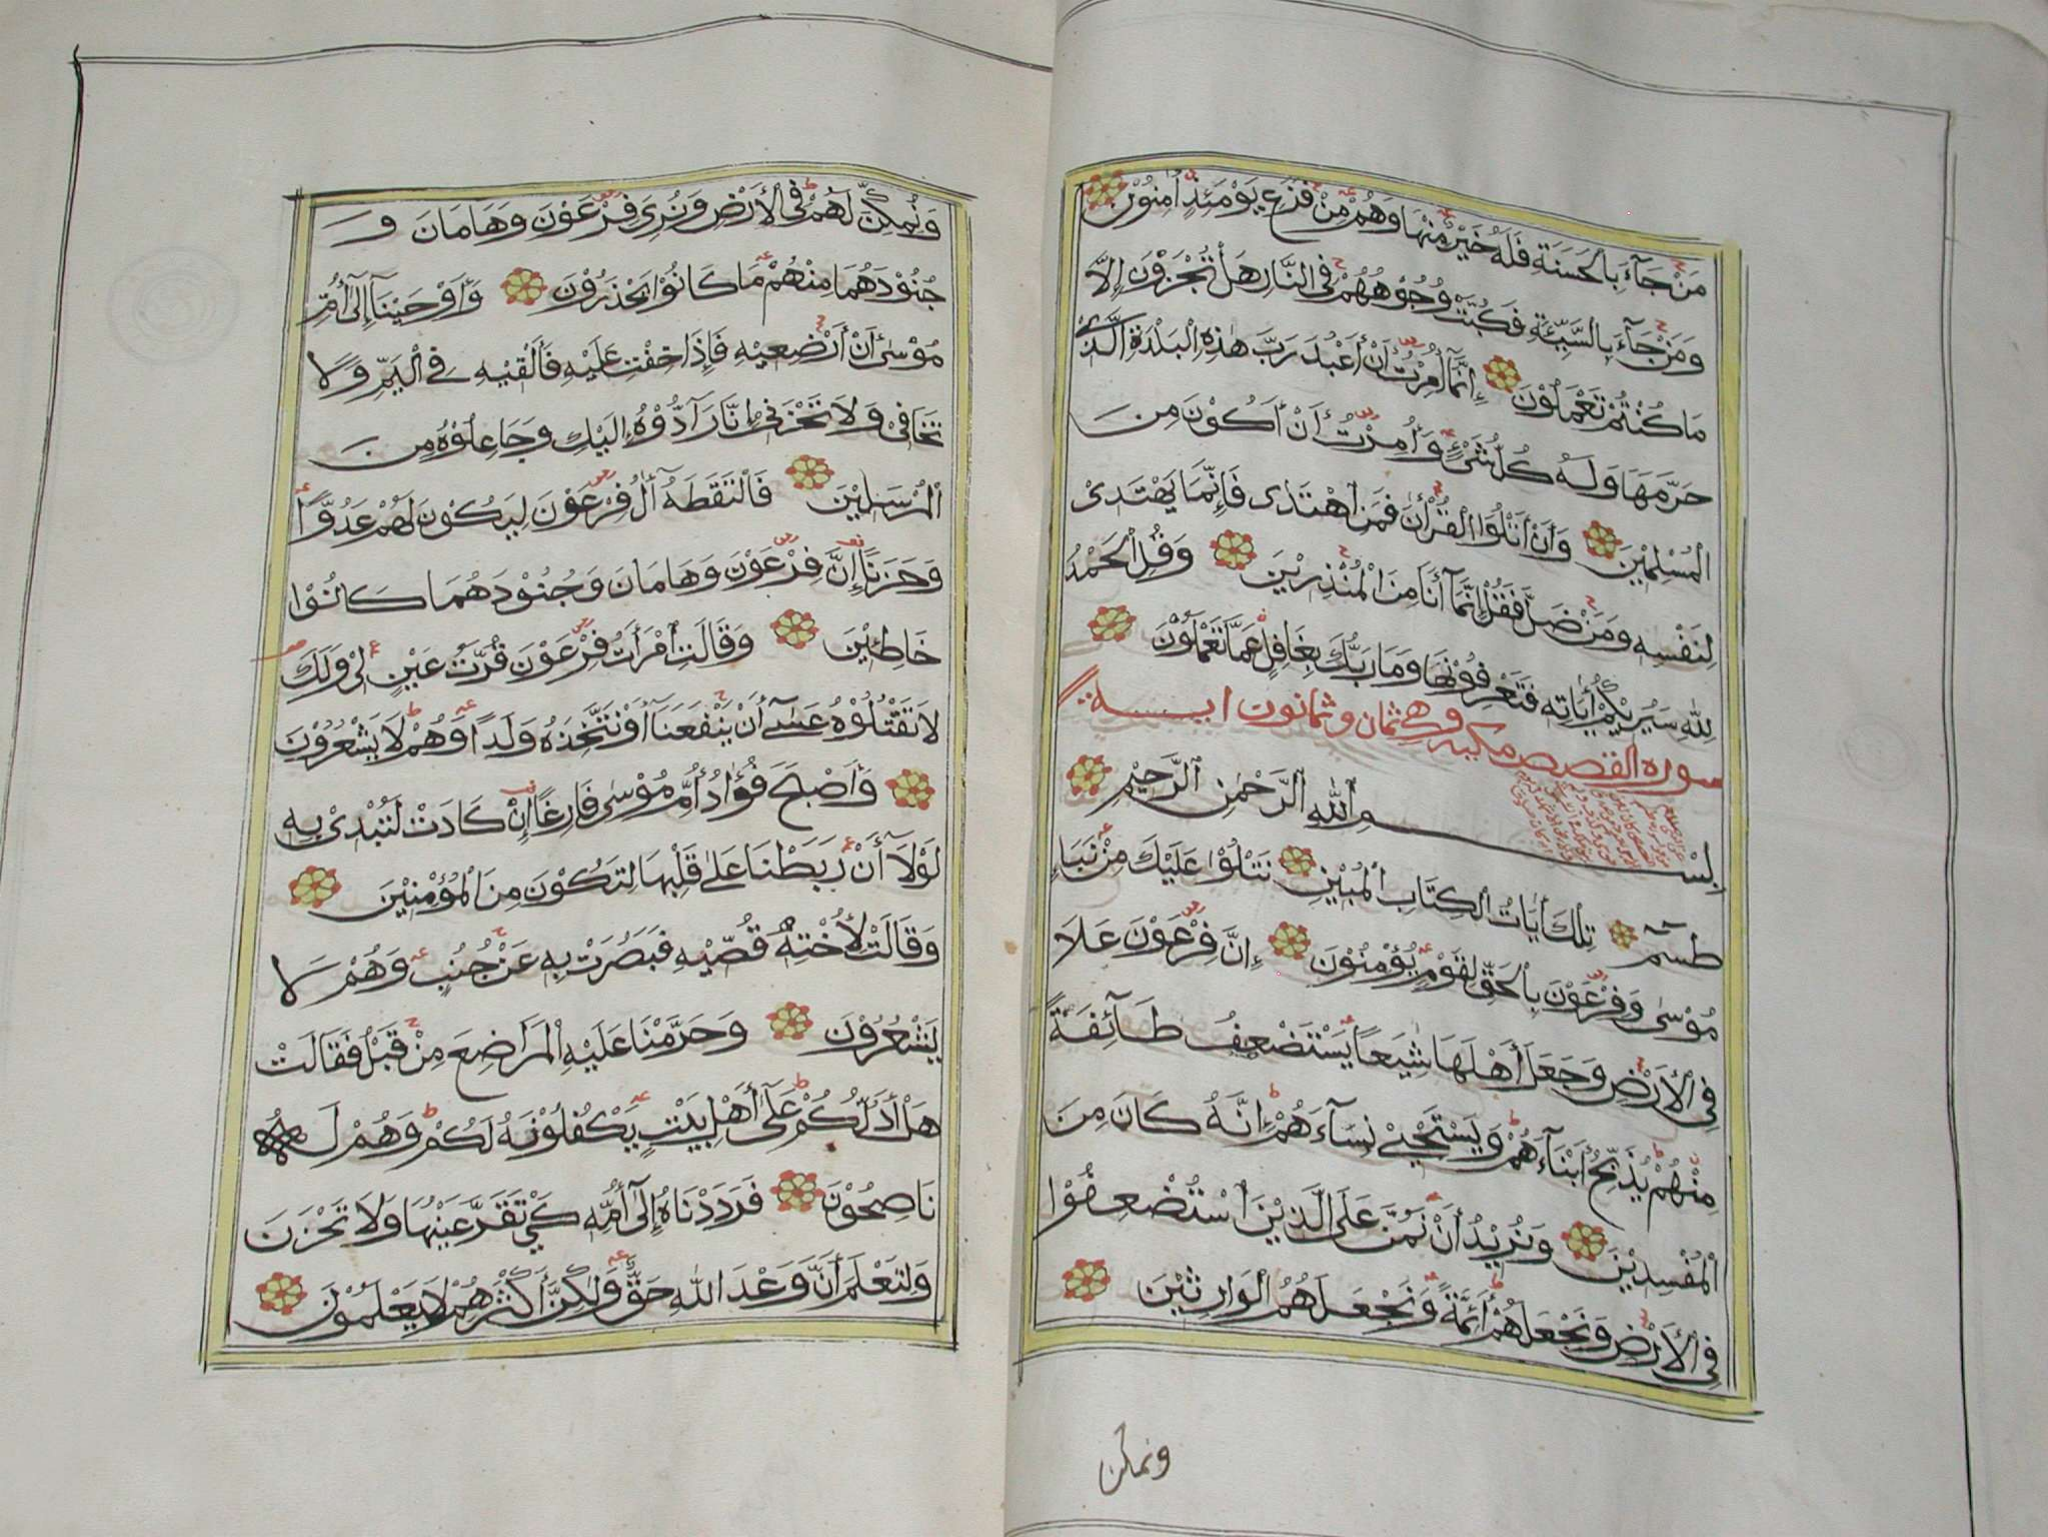 مَنْ جَآءَ بِالْحَسَنَةِ فَلَهُ خَيْرٌ مِنْهَا وَهُمْ مِنْ فَزَعٍ يَوْمَئِذٍ اٰمِنُوْنَ
وَمَنْ جَآءَ بِالسَّيِّئَةِ فَكُبَّتْ وُجُوْهُهُمْ فِى النَّارِ هَلْ تُجْزَوْنَ اِلَّا
مَا كُنْتُمْ تَعْمَلُوْنَ إِنَّمَآ أُمِرْتُ أَنْ أَعْبُدَ رَبَّ هٰذِهِ الْبَلْدَةِ الَّذِيْ
حَرَّمَهَا وَلَهُ كُلُّ شَىْءٍ وَأُمِرْتُ أَنْ أَكُوْنَ مِنَ
الْمُسْلِمِيْنَ وَأَنْ أَتْلُوَا الْقُرْأٰنَ فَمَنِ اهْتَدٰى فَإِنَّمَا يَهْتَدِىْ
لِنَفْسِهِ وَمَنْ ضَلَّ فَقُلْ إِنَّمَآ أَنَا مِنَ الْمُنْذِرِيْنَ وَقُلِ الْحَمْدُ
لِلّٰهِ سَيُرِيْكُمْ أٰيَاتِهِ فَتَعْرِفُوْنَهَا وَمَا رَبُّكَ بِغَافِلٍ عَمَّا تَعْمَلُوْنَ
سورة القصص مكية وهي ثمان وثمانون اية
بِسْمِ اللّٰهِ الرَّحْمٰنِ الرَّحِيْمِ
طٰسٓمٓ تِلْكَ أٰيَاتُ الْكِتَابِ الْمُبِيْنِ نَتْلُوْا عَلَيْكَ مِنْ نَبَإِ
مُوْسٰى وَفِرْعَوْنَ بِالْحَقِّ لِقَوْمٍ يُؤْمِنُوْنَ إِنَّ فِرْعَوْنَ عَلَا
فِى الْأَرْضِ وَجَعَلَ أَهْلَهَا شِيَعًا يَسْتَضْعِفُ طَآئِفَةً
مِنْهُمْ يُذَبِّحُ أَبْنَآءَهُمْ وَيَسْتَحْيِيْ نِسَآءَهُمْ إِنَّهُ كَانَ مِنَ
الْمُفْسِدِيْنَ وَنُرِيْدُ أَنْ نَمُنَّ عَلَى الَّذِيْنَ اسْتُضْعِفُوْا
فِى الْأَرْضِ وَنَجْعَلَهُمْ أَئِمَّةً وَنَجْعَلَهُمُ الْوَارِثِيْنَ
ونمكن
وَنُمَكِّنَ لَهُمْ فِى الْأَرْضِ وَنُرِىَ فِرْعَوْنَ وَهَامَانَ وَ
جُنُوْدَهُمَا مِنْهُمْ مَا كَانُوْا يَحْذَرُوْنَ وَأَوْحَيْنَآ إِلٰٓى أُمِّ
مُوْسٰٓى أَنْ أَرْضِعِيْهِ فَإِذَا خِفْتِ عَلَيْهِ فَأَلْقِيْهِ فِى الْيَمِّ وَلَا
تَخَافِىْ وَلَا تَحْزَنِىْ إِنَّا رَآدُّوْهُ إِلَيْكِ وَجَاعِلُوْهُ مِنَ
الْمُرْسَلِيْنَ فَالْتَقَطَهُ أٰلُ فِرْعَوْنَ لِيَكُوْنَ لَهُمْ عَدُوًّا
وَحَزَنًا إِنَّ فِرْعَوْنَ وَهَامَانَ وَجُنُوْدَهُمَا كَانُوْا
خَاطِئِيْنَ وَقَالَتِ امْرَأَتُ فِرْعَوْنَ قُرَّتُ عَيْنٍ لِىْ وَلَكَ
لَا تَقْتُلُوْهُ عَسٰٓى أَنْ يَنْفَعَنَآ أَوْ نَتَّخِذَهُ وَلَدًا وَهُمْ لَا يَشْعُرُوْنَ
وَأَصْبَحَ فُؤَادُ أُمِّ مُوْسٰى فَارِغًا إِنْ كَادَتْ لَتُبْدِىْ بِهِ
لَوْلَآ أَنْ رَبَطْنَا عَلٰى قَلْبِهَا لِتَكُوْنَ مِنَ الْمُؤْمِنِيْنَ
وَقَالَتْ لِأُخْتِهِ قُصِّيْهِ فَبَصُرَتْ بِهِ عَنْ جُنُبٍ وَهُمْ لَا
يَشْعُرُوْنَ وَحَرَّمْنَا عَلَيْهِ الْمَرَاضِعَ مِنْ قَبْلُ فَقَالَتْ
هَلْ أَدُلُّكُمْ عَلٰٓى أَهْلِ بَيْتٍ يَكْفُلُوْنَهُ لَكُمْ وَهُمْ لَهُ
نَاصِحُوْنَ فَرَدَدْنَاهُ إِلٰٓى أُمِّهِ كَىْ تَقَرَّ عَيْنُهَا وَلَا تَحْزَنَ
وَلِتَعْلَمَ أَنَّ وَعْدَ اللّٰهِ حَقٌّ وَلٰكِنَّ أَكْثَرَهُمْ لَا يَعْلَمُوْنَ